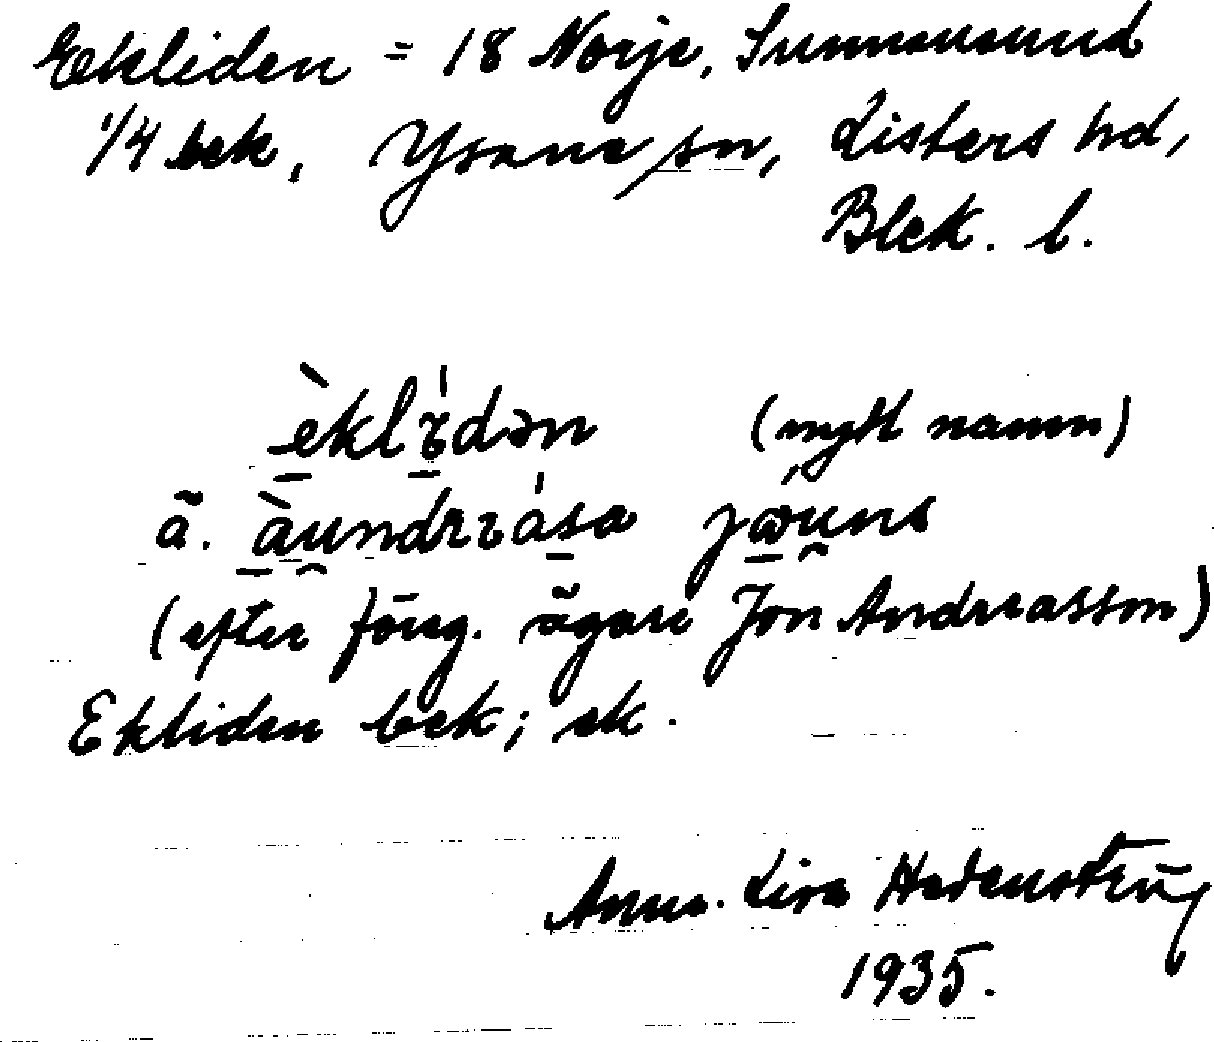 Ekliden = 18 Norje, Sunnansund
1/4 bek, Ysane sn, Listers hd,
Blek. l.
èklɪ́dən (nytt namn)
ã. àundrɪása jøuns
(efter föreg. ägare Jön Andreasson)
Ekliden bek; ek.
Anna-Lisa Hedenström
1935.